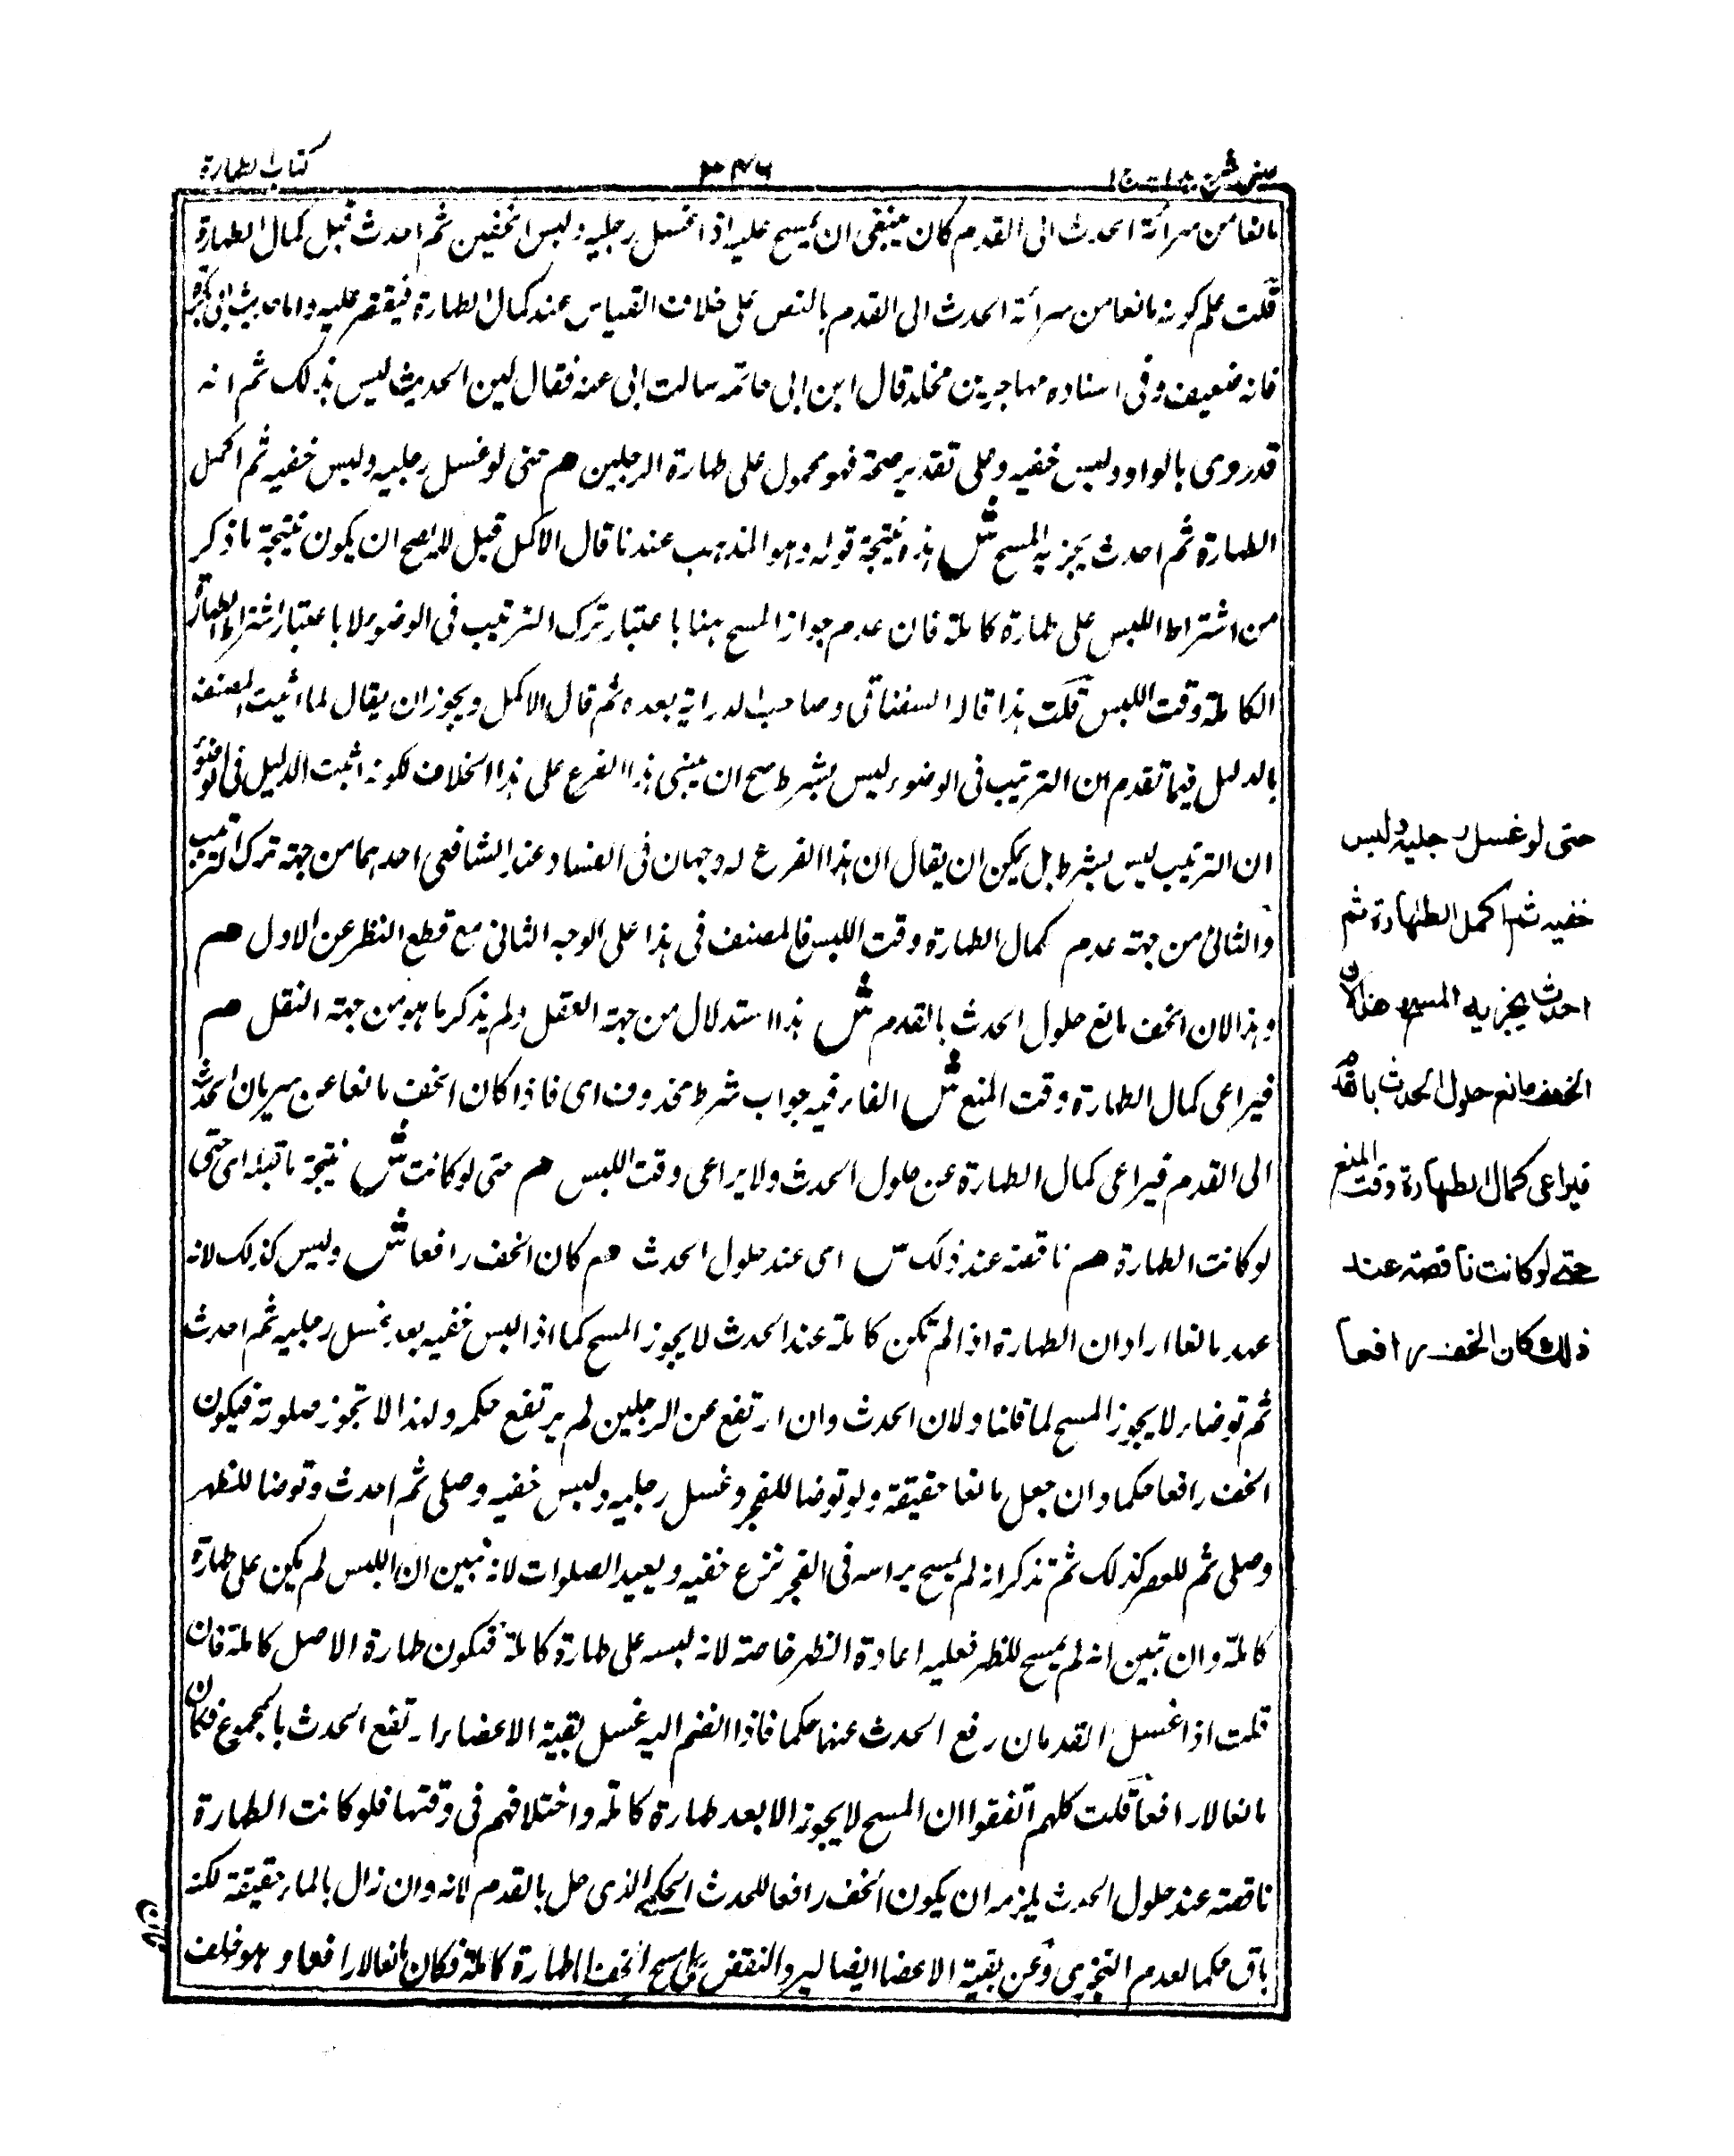 عینی شرح ہدایہ ج ۱
۳۴۶
کتاب الطہارة
مانعا من سرائة الحدث الى القدم كان ينبغى ان يمسح عليه اذا غسل رجليه ولبس الخفين ثم احدث قبل كمال الطهارة
قلت علم كونه مانعا من سرائة الحدث الى القدم بالنص على خلاف القياس عند كمال الطهارة فيقتصر عليه واما حديث ابى بكرة
فانه ضعيف وفى اسناده مهاجر بن مخلد قال ابن ابى حاتمه سالت ابى عنه فقال لين الحديث ليس بذلك ثم انه
قد روى بالواو ولبس خفيه وعلى تقدير صحة فهو محمول على طهارة الرجلين هم حتى لو غسل رجليه ولبس خفيه ثم اكمل
الطهارة ثم احدث يجزيه المسح ش هذه نتيجة قوله وهو المذهب عندنا قال الاكمل قيل لا يصح ان يكون نتيجة ما ذكر
من اشتراط اللبس على طهارة كاملة فان عدم جواز المسح هنا باعتبار ترك الترتيب فى الوضوء لا باعتبار اشتراط الطهارة
الكاملة وقت اللبس قلت هذا قاله السغناقى وصاحب الدراية بعده ثم قال الاكمل ويجوز ان يقال لما اثبت المصنف
بالدليل فيما تقدم ان الترتيب فى الوضوء ليس بشرط صح ان يبنى هذا الفرع على هذا الخلاف لكونه اثبت الدليل فى الوضوء
ان الترتيب ليس بشرط بل يمكن ان يقال ان هذا الفرع له وجهان فى الفساد عند الشافعى احدهما من جهة ترك الترتيب
والثانى من جهة عدم كمال الطهارة وقت اللبس فالمصنف فى هذا على الوجه الثانى مع قطع النظر عن الاول هم
وهذا لان الخف مانع حلول الحدث بالقدم ش هذا استدلال من جهة العقل ولم يذكر ما هو من جهة النقل هم
فيراعى كمال الطهارة وقت المنع ش الفاء فيه جواب شرط محذوف اى فاذا كان الخف مانعا عن سريان الحدث
الى القدم فيراعى كمال الطهارة عن حلول الحدث ولا يراعى وقت اللبس هم حتى لو كانت ش نتيجة ما قبله اى حتى
لو كانت الطهارة هم ناقصة عند ذلك ش اى عند حلول الحدث هم كان الخف رافعا ش وليس كذلك لانه
عهد مانعا اراد ان الطهارة اذا لم تكن كاملة عند الحدث لا يجوز المسح كما اذا لبس خفيه بعد غسل رجليه ثم احدث
ثم توضاء لا يجوز المسح لما قلنا ولان الحدث وان ارتفع عن الرجلين لم يرتفع حكمه ولهذا لا تجوز صلوته فيكون
الخف رافعا حكما وان جعل مانعا حقيقة ولو توضا للفجر وغسل رجليه ولبس خفيه وصلى ثم احدث وتوضا للظهر
وصلى ثم للعصر كذلك ثم تذكر انه لم يمسح براسه فى الفجر نزع خفيه ويعيد الصلوات لانه تبين ان اللبس لم يكن على طهارة
كاملة وان تبين انه لم يمسح للظهر فعليه اعادة الظهر خاصة لانه لبسه على طهارة كاملة فتكون طهارة الاصل كاملة فان
قلت اذا غسل القدمان رفع الحدث عنهما حكما فاذا انضم اليه غسل بقية الاعضاء ارتفع الحدث بالمجموع فكان
مانعا لا رافعا قلت كلهم اتفقوا ان المسح لا يجوز الا بعد طهارة كاملة واختلافهم فى وقتها فلو كانت الطهارة
ناقصة عند حلول الحدث يلزمه ان يكون الخف رافعا للحدث الحكمى الذى حل بالقدم لانه وان زال بالماء حقيقة لكنه
باق حكما لعدم التجزى وعن بقية الاعضا ايضا ليرد النقض على مسح الخف الطهارة كاملة فكان مانعا لا رافعا وهو خلف
حتى لو غسل رجليه ولبس
خفيه ثم اكمل الطهارة ثم
احدث يجزيه المسح هذا لان
الخف مانع حلول الحدث بالقدم
فيراعى كمال الطهارة وقت المنع
حتى لو كانت ناقصة عند
ذلك كان الخف رافعا